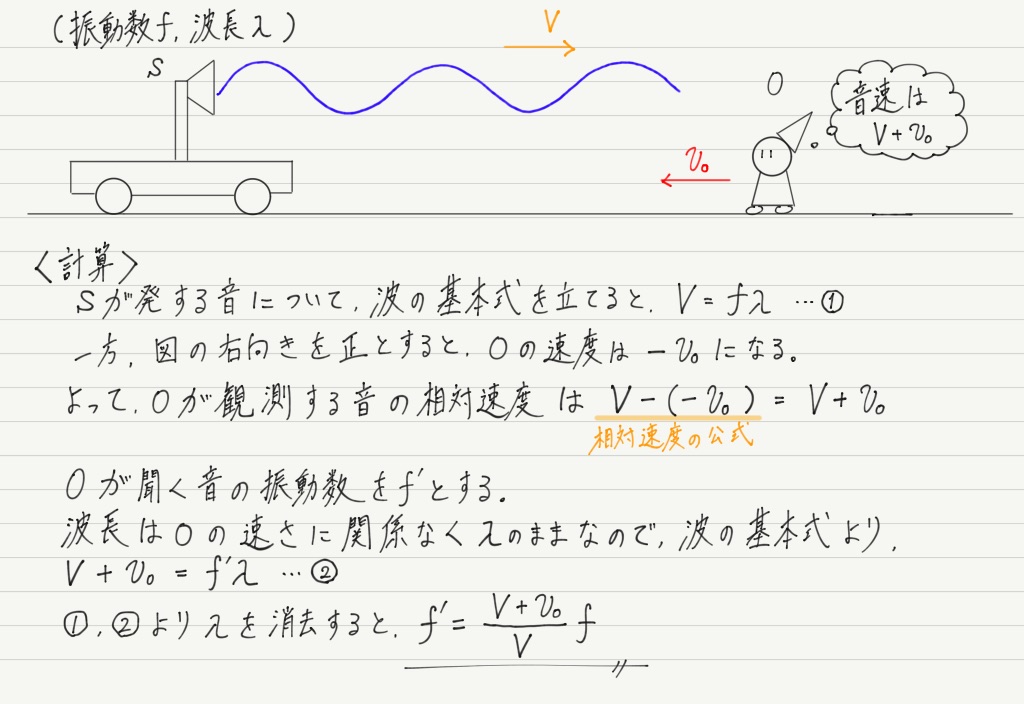 (振動数f, 波長λ)
V
S
O
音速は
V+v₀
v₀
<計算>
Sが発する音について, 波の基本式を立てると, V=fλ …①
一方, 図の右向きを正とすると, Oの速度は −v₀になる。
よって, Oが観測する音の相対速度は V−(−v₀) = V+v₀
相対速度の公式
Oが聞く音の振動数をf′とする。
波長はOの速さに関係なくλのままなので, 波の基本式より,
V+v₀ = f′λ …②
①, ②よりλを消去すると, f′= (V+v₀)/V f